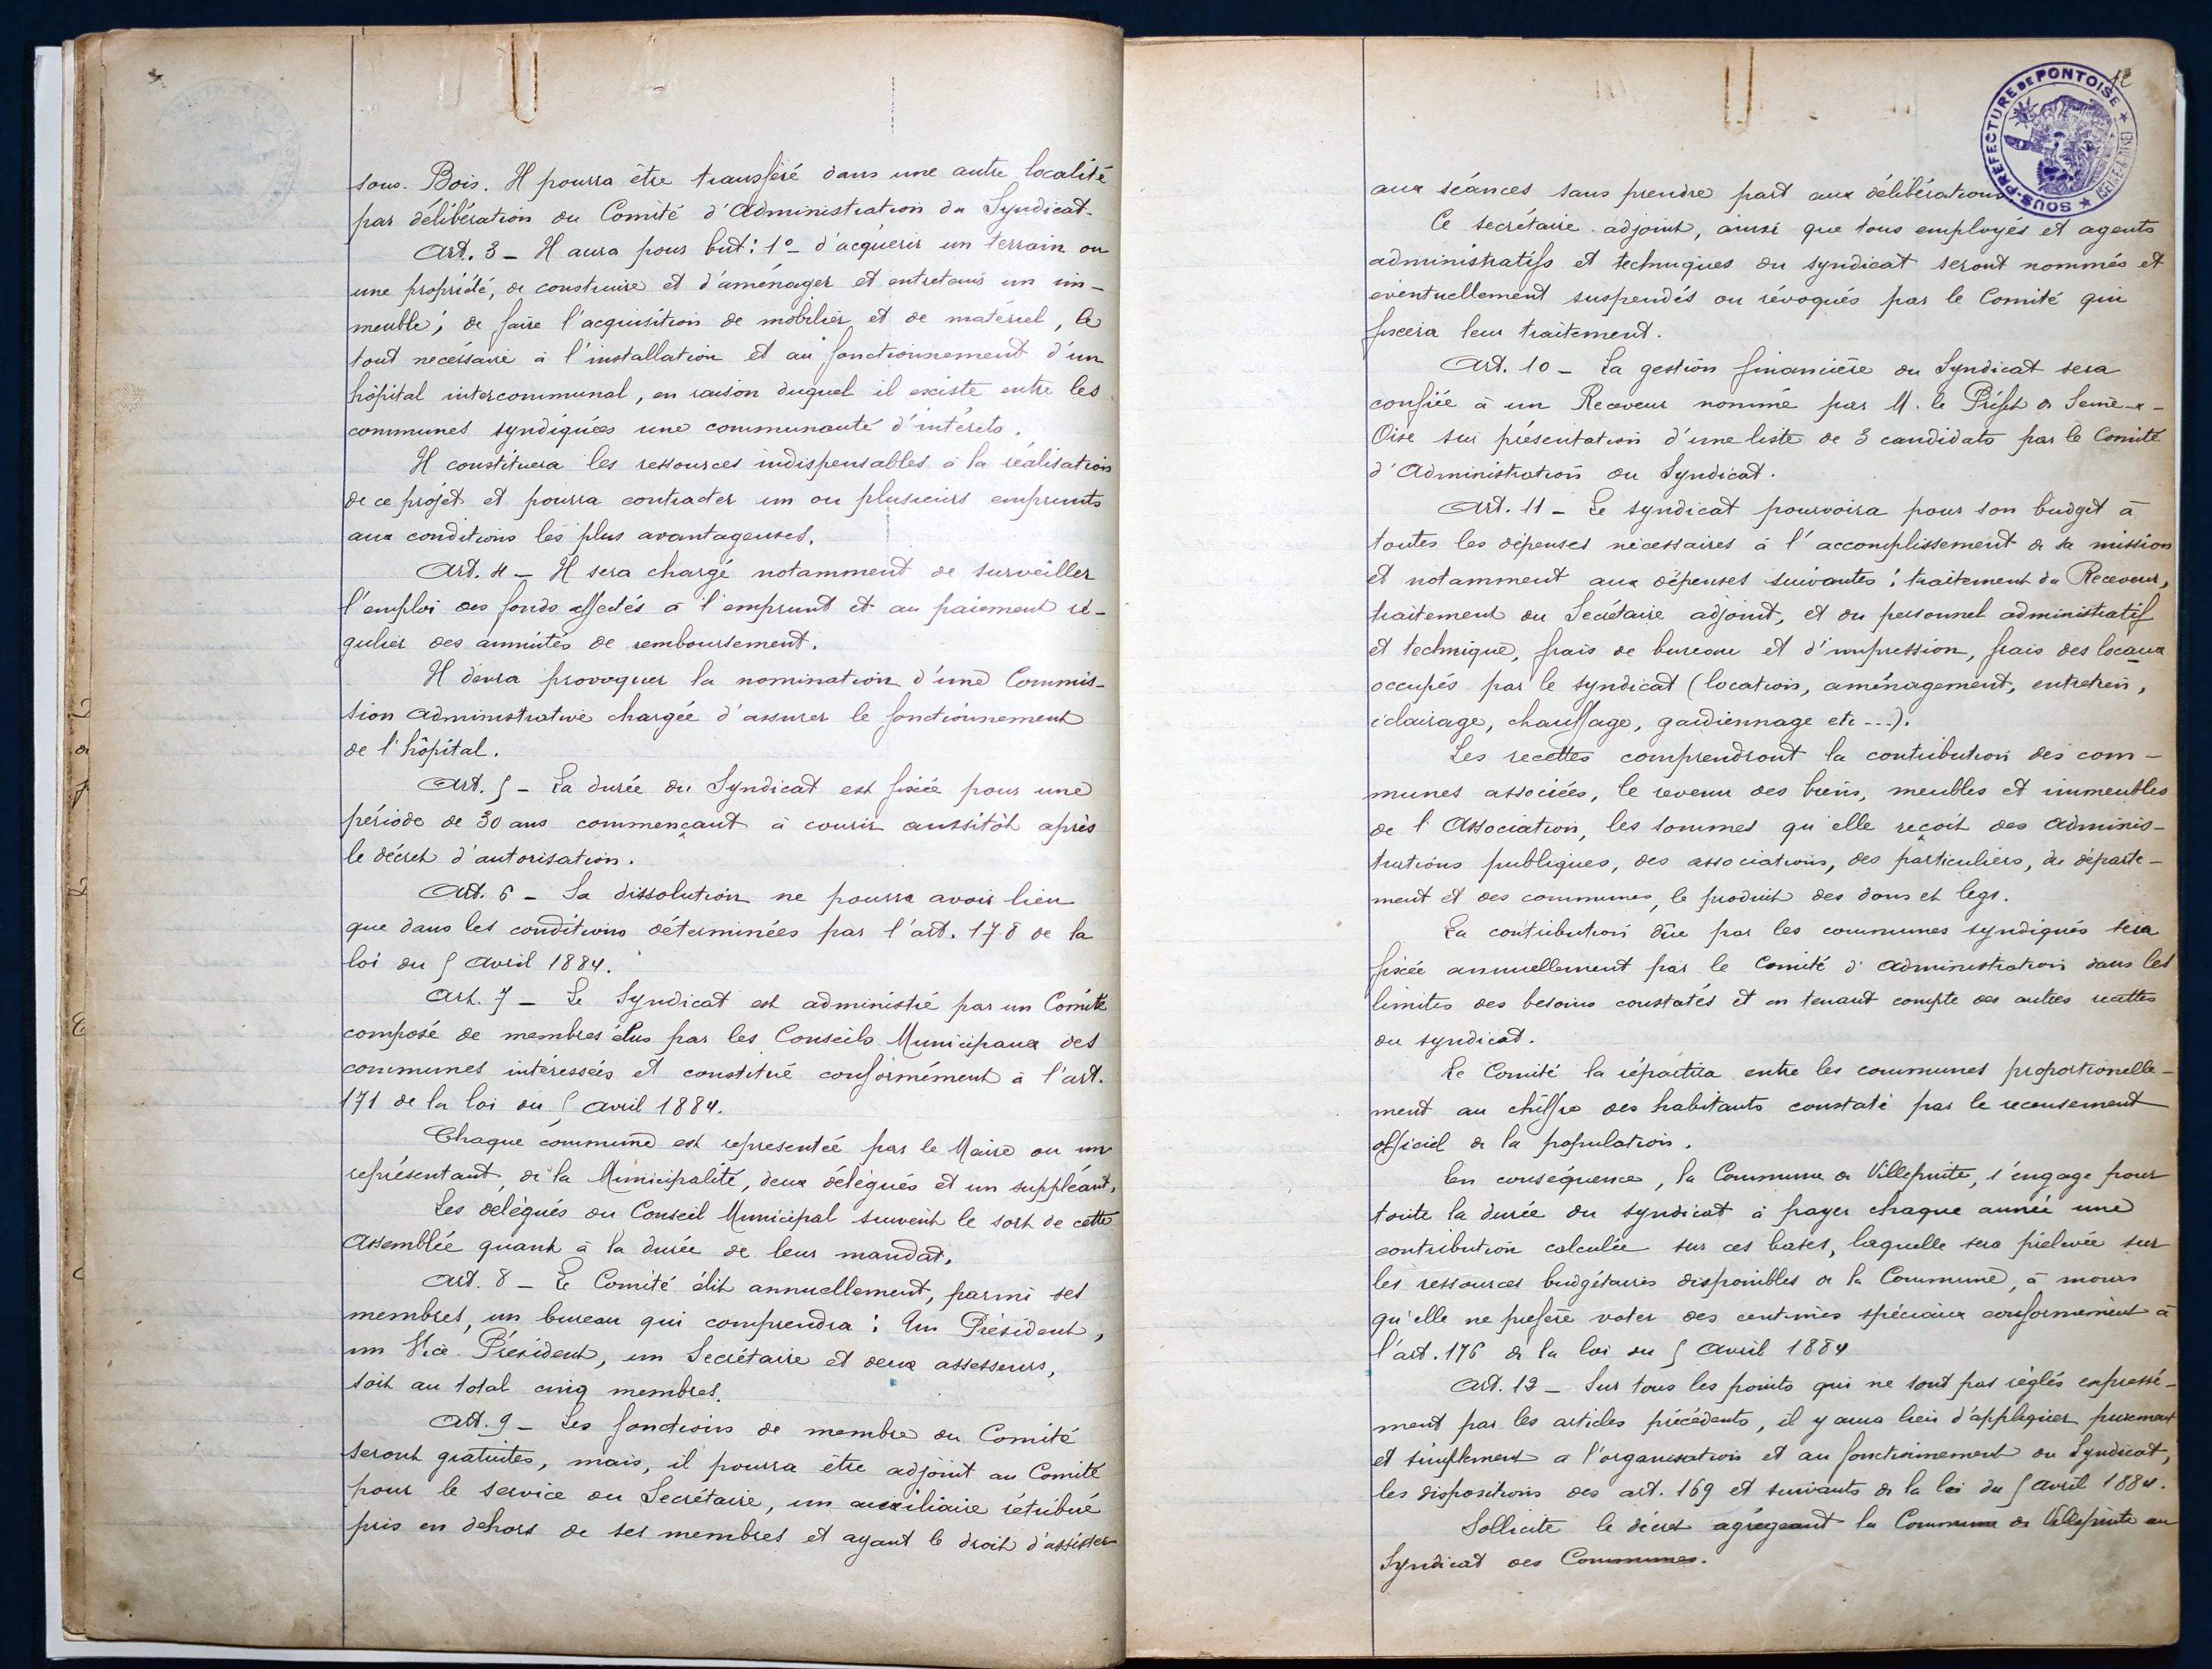 sous-Bois. Il pourra être transféré dans une autre localité
par délibération du Comité d'Administration du Syndicat.
Art. 3 - Il aura pour but : 1º - d'acquérir un terrain ou
une propriété, de construire et d'aménager et entretenir un im-
meuble ; de faire l'acquisition de mobilier et de matériel, le
tout nécessaire à l'installation et au fonctionnement d'un
hôpital intercommunal, en raison duquel il existe entre les
communes syndiquées une communauté d'intérêts.
Il constituera les ressources indispensables à la réalisation
de ce projet et pourra contracter un ou plusieurs emprunts
aux conditions les plus avantageuses.
Art. 4 - Il sera chargé notamment de surveiller
l'emploi des fonds affectés à l'emprunt et au paiement ré-
gulier des annuités de remboursement.
Il devra provoquer la nomination d'une Commis-
sion administrative chargée d'assurer le fonctionnement
de l'hôpital.
Art. 5 - La durée du Syndicat est fixée pour une
période de 30 ans commençant à courir aussitôt après
le décret d'autorisation.
Art. 6 - La dissolution ne pourra avoir lieu
que dans les conditions déterminées par l'art. 178 de la
loi du 5 Avril 1884.
Art. 7 - Le Syndicat est administré par un Comité
composé de membres élus par les Conseils Municipaux des
communes intéressées et constitué conformément à l'art.
171 de la loi du 5 avril 1884.
Chaque commune est representée par le Maire ou un
représentant de la Municipalité, deux délégués et un suppléant.
Les délégués du Conseil Municipal suivent le sort de cette
Assemblée quant à la durée de leur mandat.
Art. 8 - Le Comité élit annuellement, parmi ses
membres, un bureau qui comprendra : Un Président,
un Vice-Président, un Secrétaire et deux assesseurs,
soit au total cinq membres.
Art. 9 - Les fonctions de membre du Comité
seront gratuites, mais, il pourra être adjoint au Comité
pour le service du Secrétaire, un auxiliaire rétribué
pris en dehors de ses membres et ayant le droit d'assister
SOUS-PRÉFECTURE DE PONTOISE
(SEINE & OISE)
aux séances sans prendre part aux délibérations.
Ce secrétaire-adjoint, ainsi que tous employés et agents
administratifs et techniques du syndicat seront nommés et
éventuellement suspendés ou révoqués par le Comité qui
fixera leur traitement.
Art. 10 - La gestion financière du Syndicat sera
confiée à un Receveur nommé par M. le Préfet de Seine-&-
Oise sur présentation d'une liste de 3 candidats par le Comité
d'Administration du Syndicat.
Art. 11 - Le syndicat pourvoira pour son budget à
toutes les dépenses nécessaires à l'accomplissement de sa mission
et notamment aux dépenses suivantes : traitement du Receveur,
traitement du Secrétaire adjoint, et du personnel administratif
et technique, frais de bureau et d'impression, frais des locaux
occupés par le syndicat (location, aménagement, entretien,
éclairage, chauffage, gardiennage etc ...).
Les recettes comprendront la contribution des com-
munes associées, le revenu des biens, meubles et immeubles
de l'Association, les sommes qu'elle reçoit des Adminis-
trations publiques, des associations, des particuliers, du départe-
ment et des communes, le produit des dons et legs.
La contribution dûe par les communes syndiqués sera
fixée annuellement par le Comité d'Administration dans les
limites des besoins constatés et en tenant compte des autres recettes
du syndicat.
Le Comité la répartira entre les communes proportionelle-
ment au chiffre des habitants constaté par le recensement
officiel de la population.
En conséquence, la Commune de Villepinte, s'engage pour
toute la durée du syndicat à payer chaque année une
contribution calculée sur ces bases, laquelle sera prélevée sur
les ressources budgétaires disponibles de la Commune, à moins
qu'elle ne préfère voter des centimes spéciaux conformément à
l'art. 176 de la loi du 5 Avril 1884
Art. 12 - Sur tous les points qui ne sont pas réglés expressé-
ment par les articles précédents, il y aura lieu d'appliquer purement
et simplement à l'organisation et au fonctionnement du Syndicat,
les dispositions des art. 169 et suivants de la loi du 5 avril 1884.
Sollicite le décret agrégeant la Commune de Villepinte au
Syndicat des Communes.